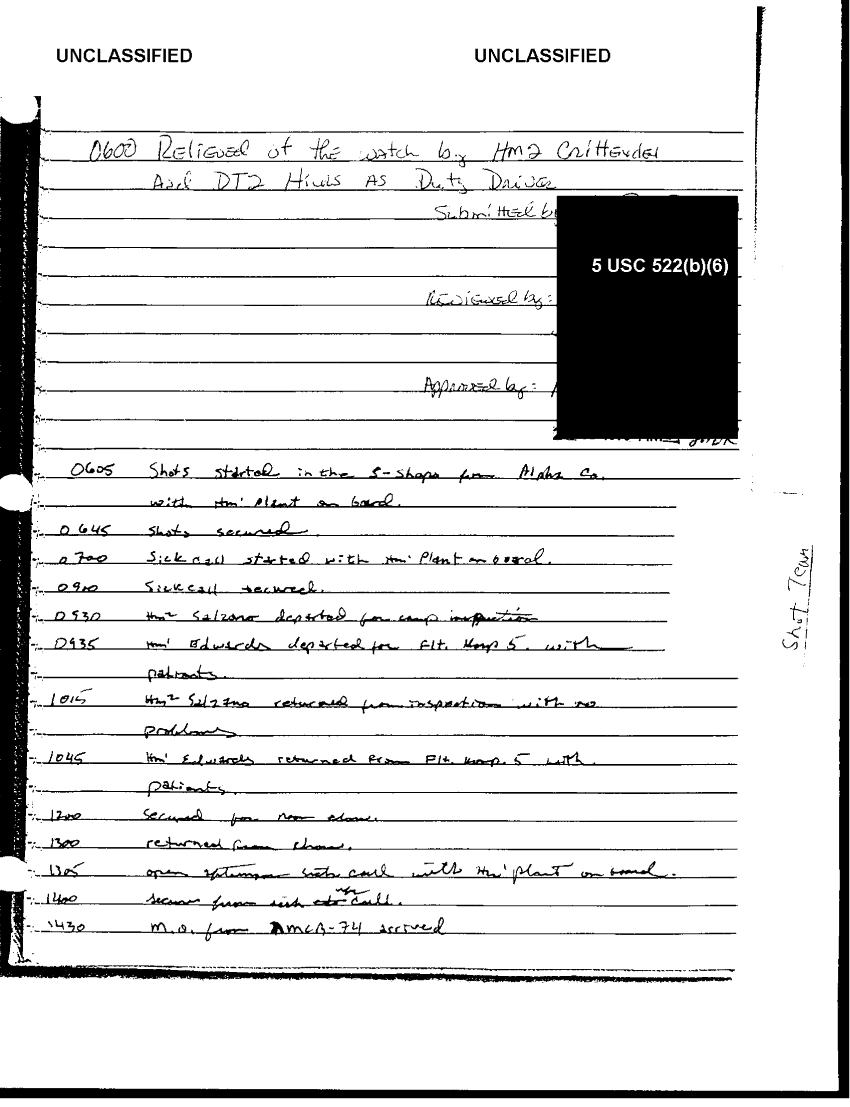 UNCLASSIFIED UNCLASSIFIED
0600 Relieved of the watch by HM2 Crittendel
And DT2 Hinds As Duty Driver
Submitted by
5 USC 522(b)(6)
Reviewed by:
Approved by:
0605 Shots started in the S-shape from Alpha Co.
with Hm1 Plant on board.
0645 Shots secured.
0700 Sick call started with Hm1 Plant on board.
0900 Sickcall secured.
0930 Hm2 Salzano departed for camp inspection
0935 Hm1 Edwards departed for Flt. Hosp 5. with
patients.
1015 Hm2 Salzano returned from inspection with no
problems
1045 Hm1 Edwards returned from Flt. Hosp. 5 with
patients.
1200 Secured for noon chow.
1300 returned from chow.
1305 open afternoon sick call with Hm1 Plant on board.
1400 secure from sick call.
1430 M.O. from NMCB-74 arrived
Shot Team